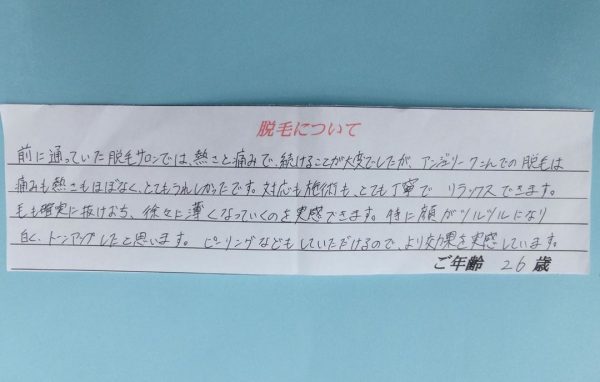 脱毛について
前に通っていた脱毛サロンでは、熱さと痛みで、続けることが大変でしたが、アンジェリークさんでの脱毛は
痛みも熱さもほぼなく、とてもうれしかったです。対応も施術も、とても丁寧で リラックスできます。
毛も確実に抜けおち、徐々に薄くなっていくのを実感できます。特に顔がツルツルになり
白く、トーンアップしたと思います。ピーリングなどもしていただけるので、より効果を実感しています。
ご年齢 26 歳